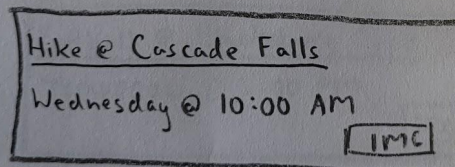 Hike @ Cascade Falls
Wednesday @ 10:00 AM
IMC